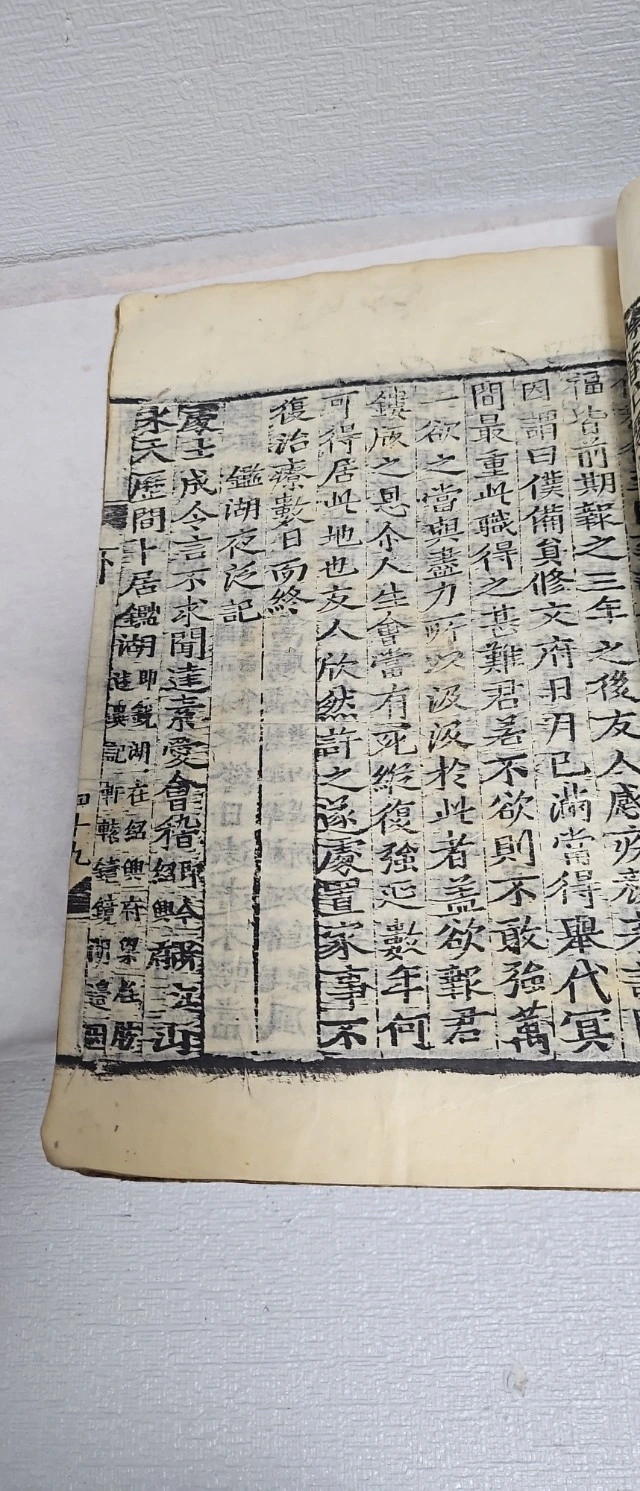 福皆前期報之三年之後友人感疾
因謂曰僕備員修文府日月已滿當得舉代冥
間最重此職得之甚難君若不欲則不敢強萬
一欲之當與盡力所以汲汲於此者盖欲報君
庾之恩尒人生會當有死縱復強延數年何
可得居此地也友人欣然許之遂處置家事不
復治療數日而終
鑑湖夜泛記
處士成令言不求聞達素愛會稽即今紹興山
水天歷間卜居鑑湖即鏡湖在紹興府
述異記軒轅鑄鏡湖邊因
下
四十九